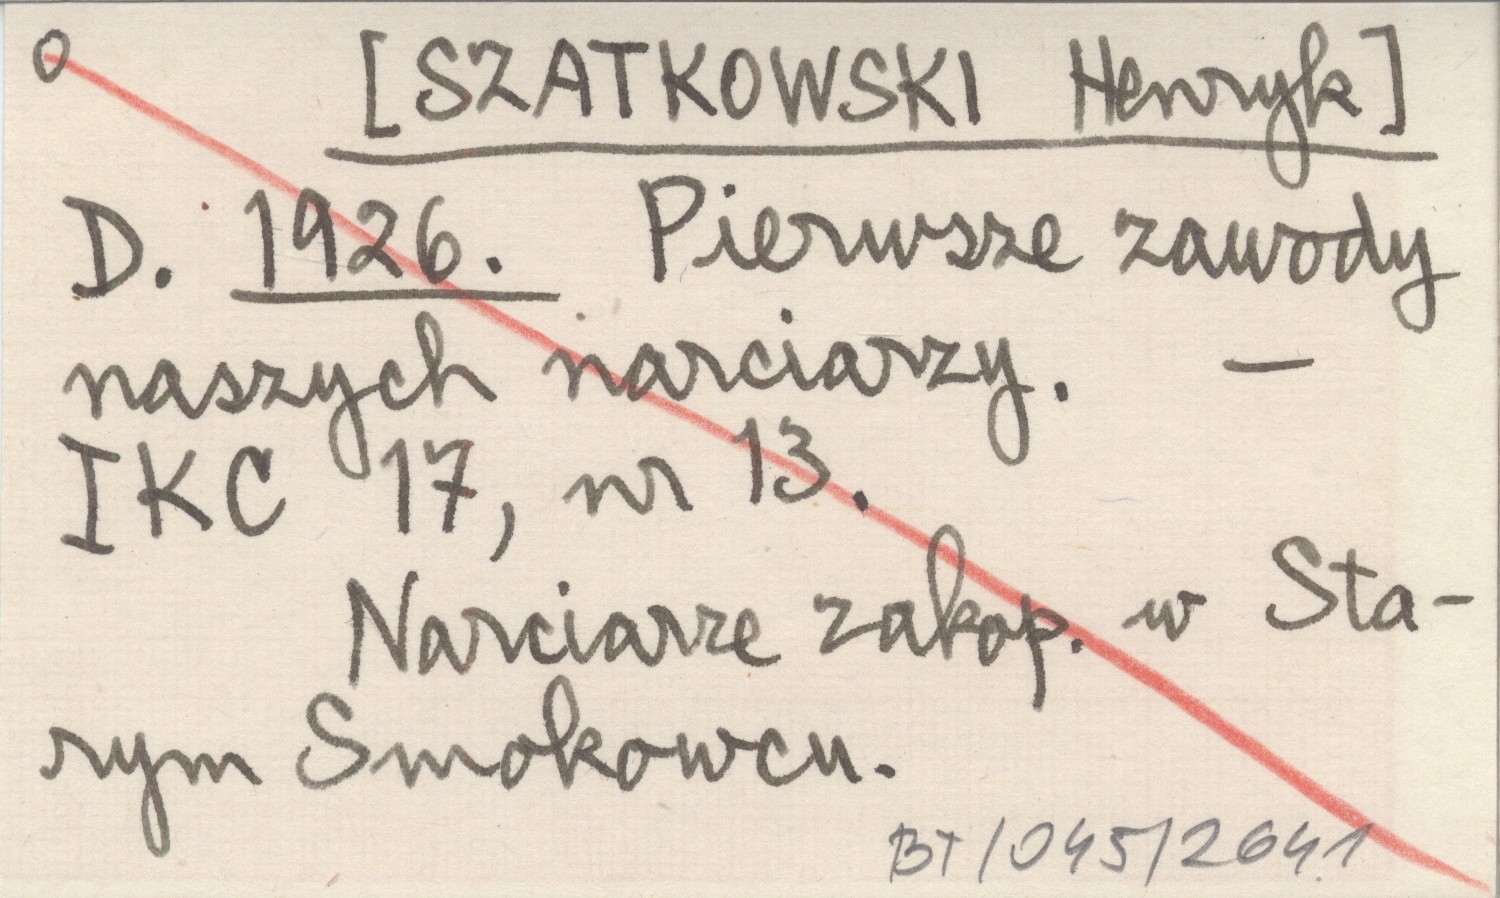 o [SZATKOWSKI Henryk]
D. 1926. Pierwsze zawody
naszych narciarzy. —
IKC 17, nr 13.
Narciarze zakop. w Sta-
rym Smokowcu.
BT/045/264.1